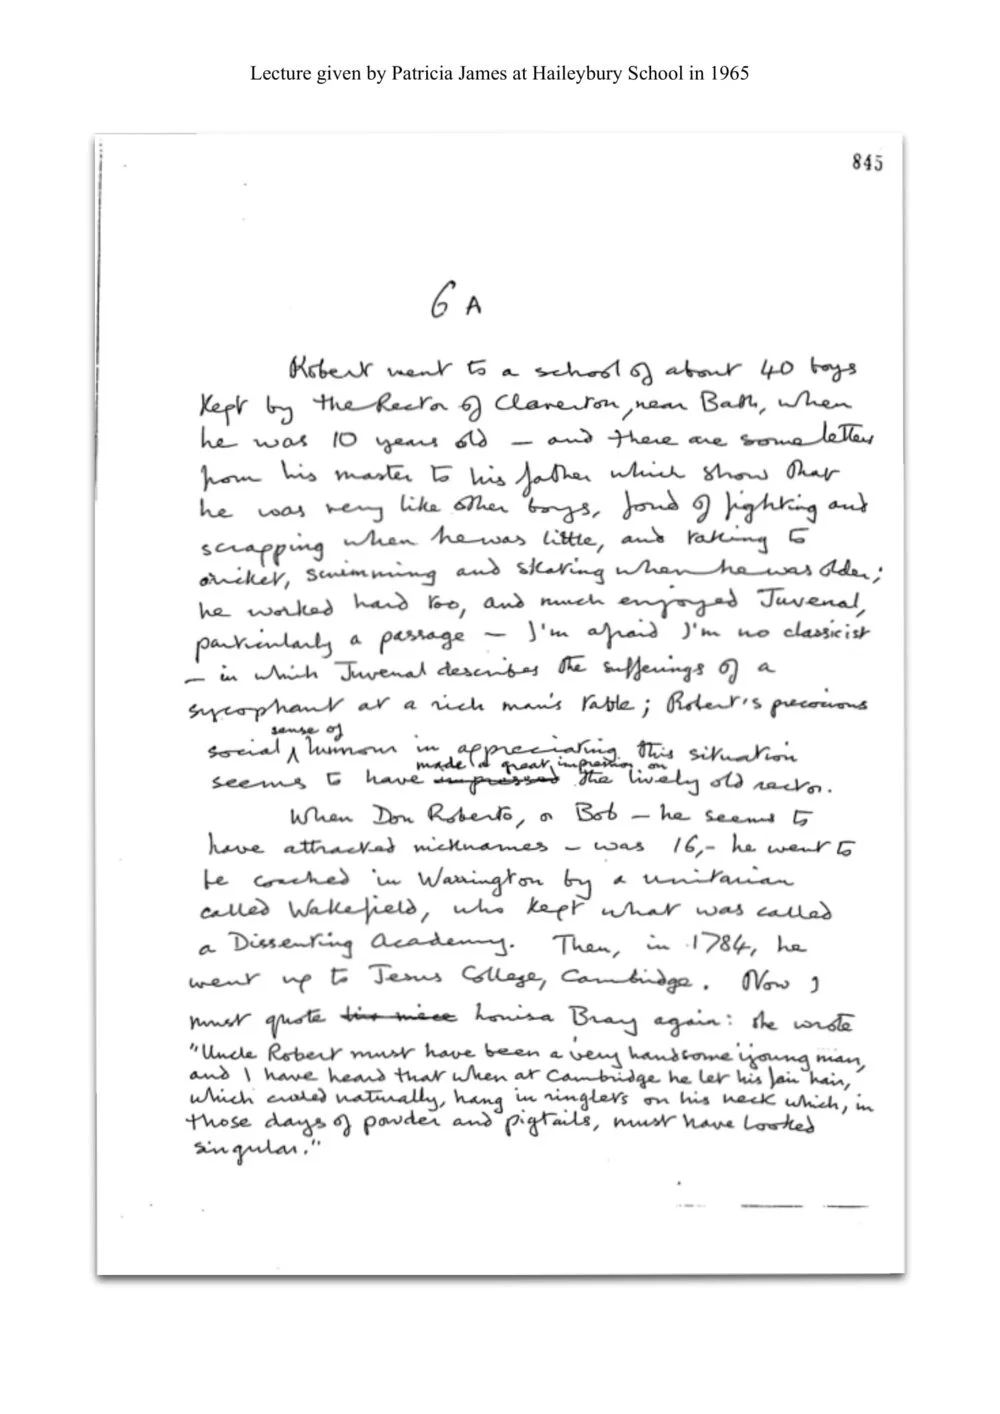 Lecture given by Patricia James at Haileybury School in 1965
845
6 A
Robert went to a school of about 40 boys
kept by the Rector of Claverton, near Bath, when
he was 10 years old – and there are some letters
from his master to his father which show that
he was very like other boys, fond of fighting and
scrapping when he was little, and taking to
cricket, swimming and skating when he was older;
he worked hard too, and much enjoyed Juvenal,
particularly a passage – I'm afraid I'm no classicist
– in which Juvenal describes the sufferings of a
sycophant at a rich man's table; Robert's precocious
sense of
social ∧ humour in appreciating this situation
made a great impression on
seems to have impressed the lively old rector.
When Don Roberto, or Bob – he seems to
have attracted nicknames – was 16, – he went to
be coached in Warrington by a unitarian
called Wakefield, who kept what was called
a Dissenting Academy. Then, in 1784, he
went up to Jesus College, Cambridge. Now I
must quote his niece Louisa Bray again: she wrote
"Uncle Robert must have been a very handsome young man,
and I have heard that when at Cambridge he let his fair hair,
which curled naturally, hang in ringlets on his neck which, in
those days of powder and pigtails, must have looked
singular."